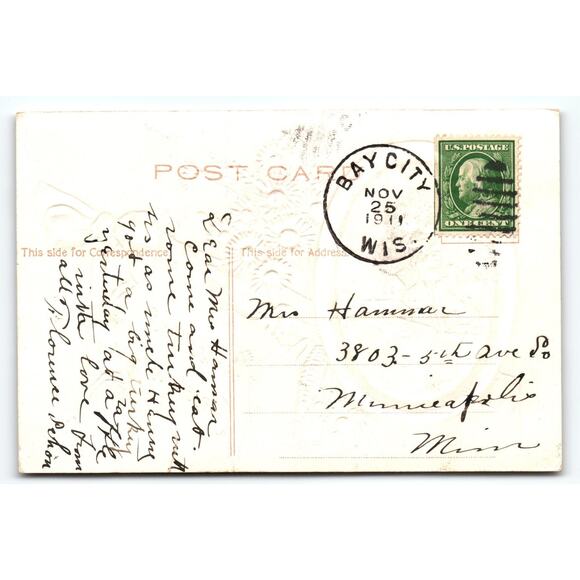 POST CARD
This side for Correspondence
This side for Address
BAY CITY
NOV
25
1911
WIS.
U.S. POSTAGE
ONE CENT
Dear Mrs Hammar
Come and eat
some turkey with
us as uncle Henry
got a big turkey
yesturday at a raffle
with love from
all Florence
Mrs Hammar
3803 - 5th Ave So
Minneapolis
Minn